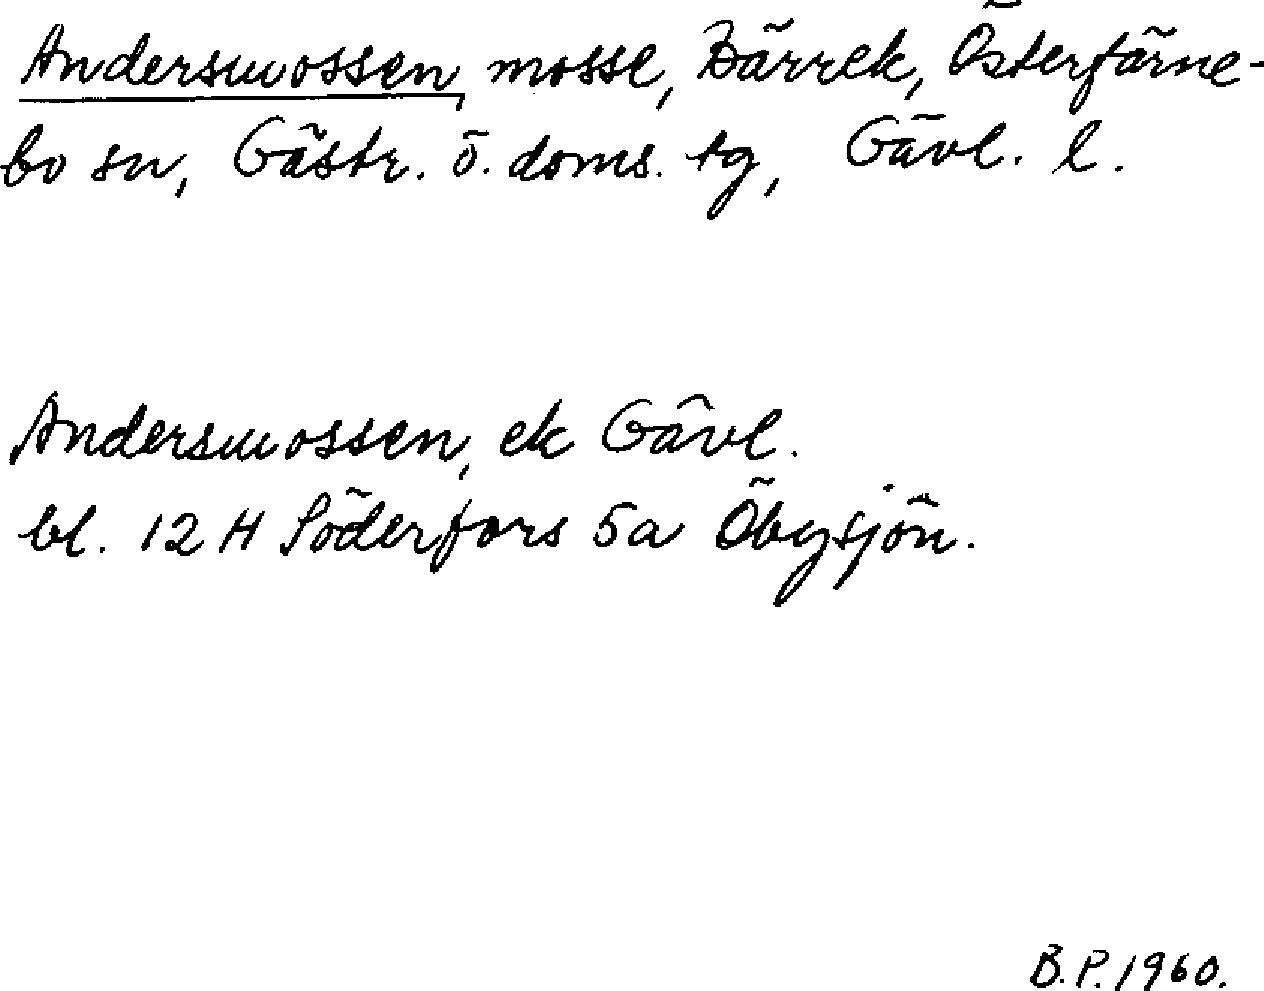 Andersmossen, mosse, Bärrek, Österfärne-
bo sn, Gästr. ö. doms. tg, Gävl. l.
Andersmossen, ek Gävl.
bl. 12 H Söderfors 5a Öbysjön.
B.P. 1960.